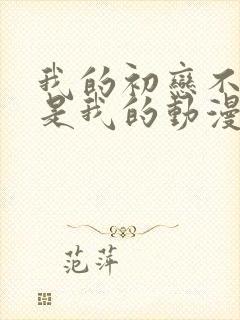 我的初戀不
是我的動漫
范萍